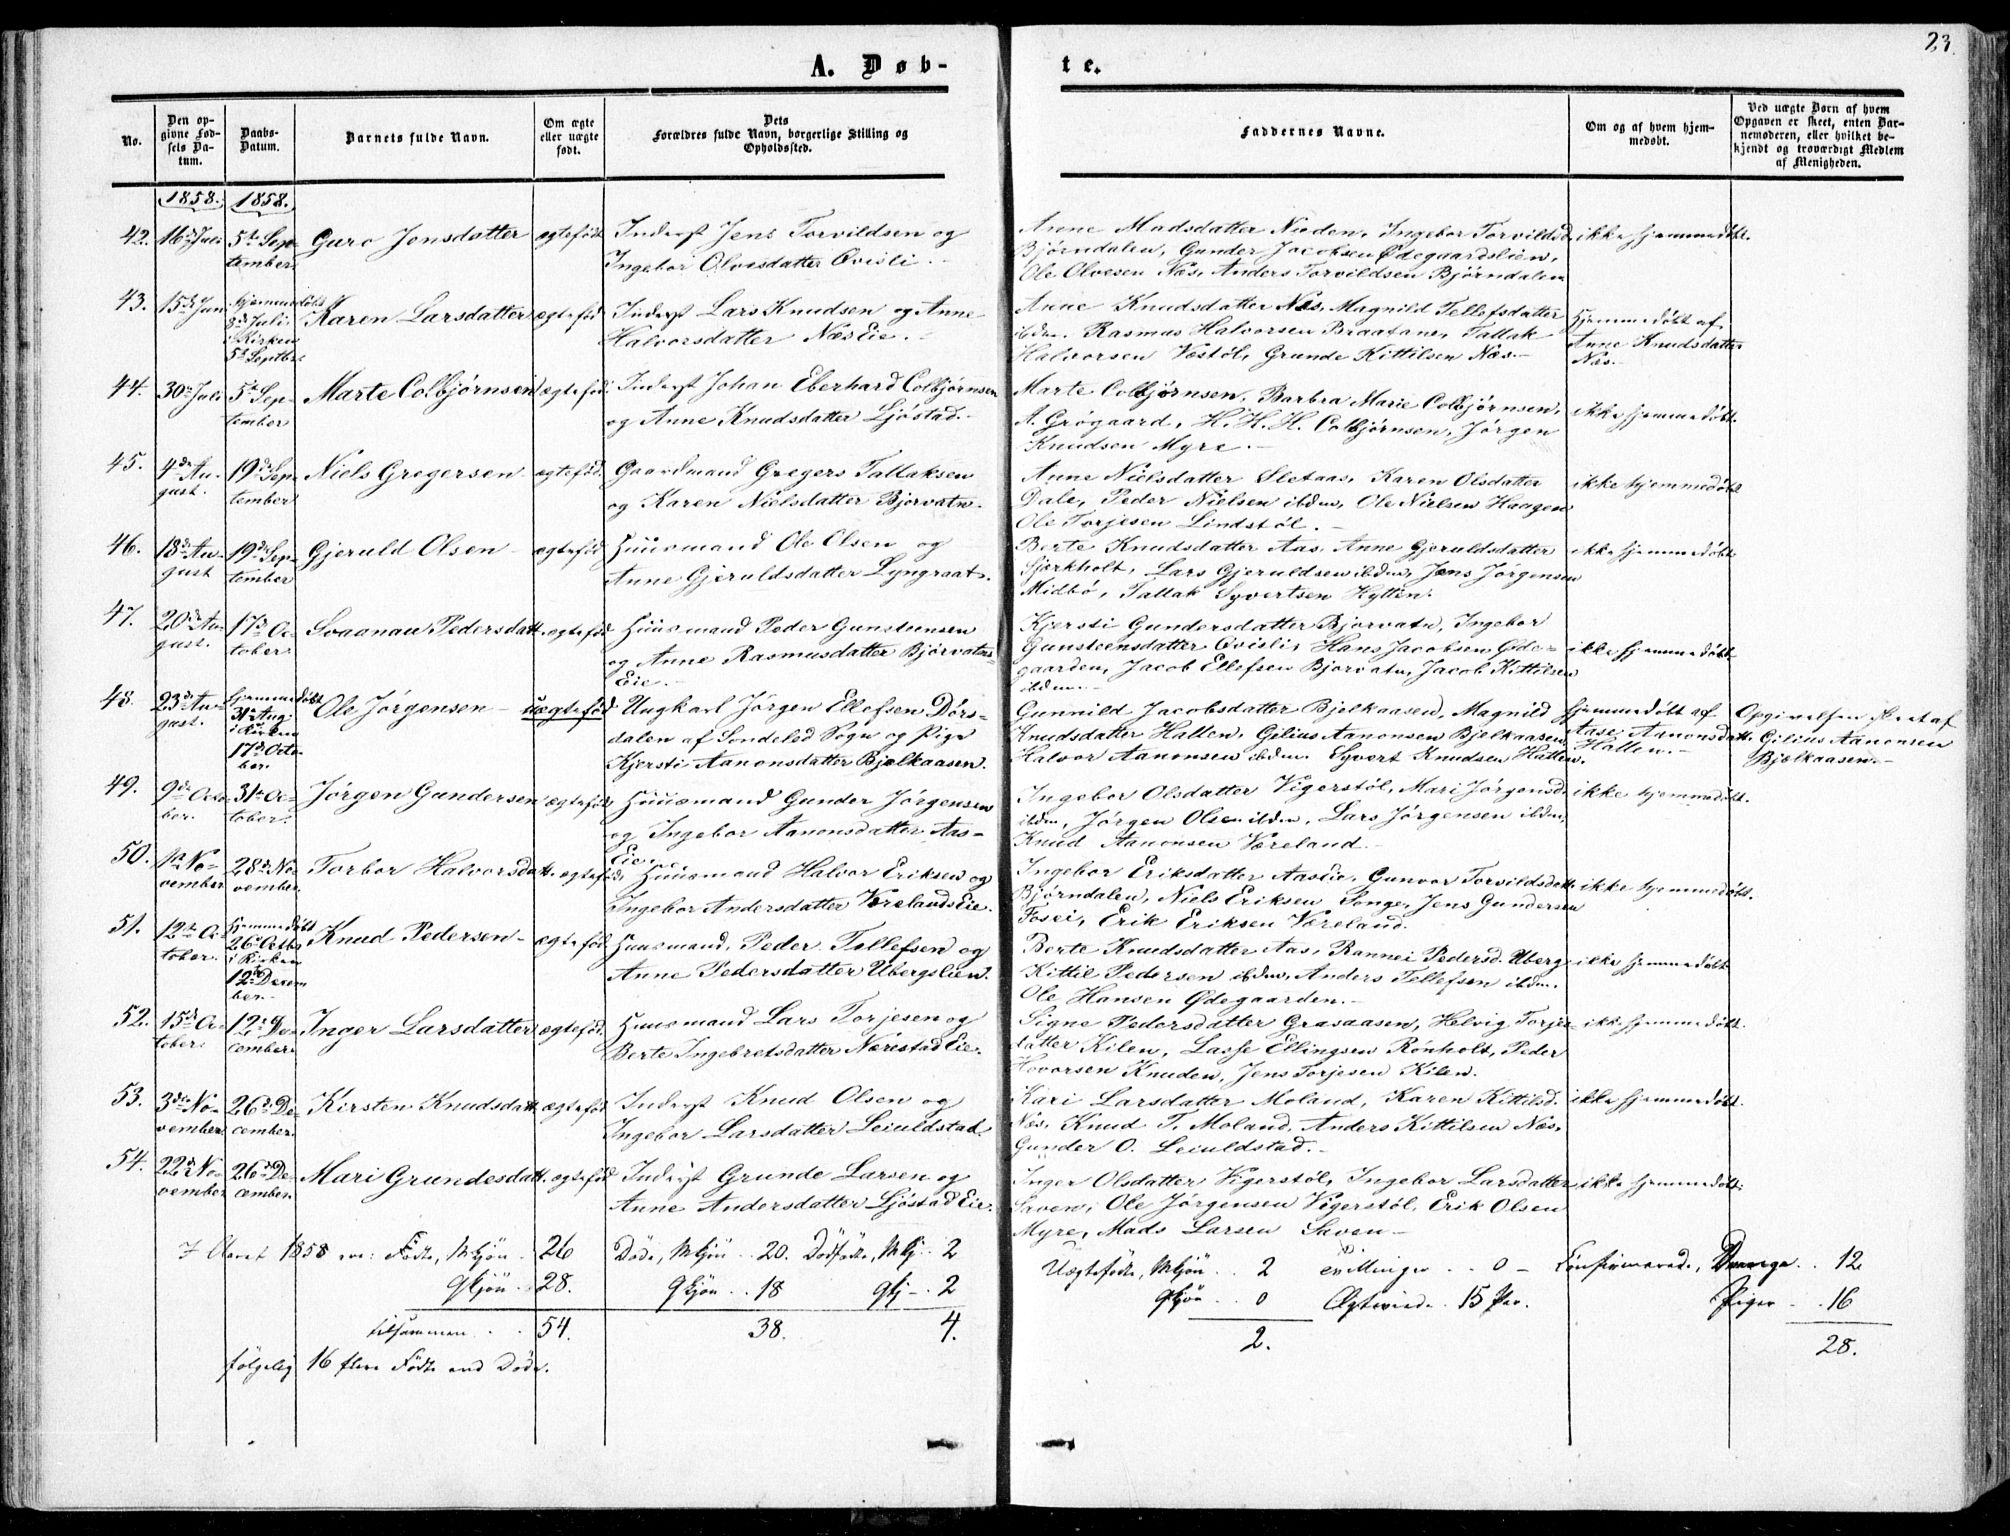 23.
A. Døb-
te.
No.
Den op-
givne Fød-
sels Da-
tum.
Daabs-
Datum.
Barnets fulde Navn.
Om ægte
eller uægte
født.
Dets
Forældres fulde Navn, borgerlige Stilling og
Opholdssted.
Faddernes Navne.
Om og af hvem hjem-
medøbt.
Ved uægte Børn af hvem
Opgaven er skeet, enten Bar-
nemoderen, eller hvilket be-
kjendt og troværdigt Medlem
af Menigheden.
1858. 1858.
42. 16de Juli 5te Sep-
tember. Guro Jensdatter ægtefødt Inderst Jens Torvildsen og
Ingebor Olvesdatter Ovisli.
Anne Madsdatter Noden, Ingebor Torvildsd.
Bjørndalen, Gunder Jacobsen Ødegaardslien,
Ole Olvesen Næs, Anders Torvildsen Bjørndalen
ikke hjemmedøbt.
43. 15de Jun hjemmedøbt
8de Juli
i Kirken
5te Septbr. Karen Larsdatter ægtefød Inderst Lars Knudsen og Anne
Halvorsdatter NæsEie.
Anne Knudsdatter Næs, Magnild Tellefsdatter
ibdm. Rasmus Halvorsen Braatane, Tallak
Halvorsen Vestøl, Grunde Kittilsen Næs.
Hjemmedøbt af
Anne Knudsdatter
Næs.
44. 30te Juli 5te Sep-
tember Marte Colbjørnsen ægtefød. Inderst Johan Eberhard Colbjørnsen
og Anne Knudsdatter Ljøstad.
Marte Colbjørnsen, Barbra Marie Colbjørnsen,
A. Grøgaard, H. H. H. Colbjørnsen, Jørgen
Knudsen Myre.
ikke hjemmedøbt.
45. 4de Au-
gust. 19de Sep-
tember Niels Gregersen ægtefød. Gaardmand Gregers Tallaksen
og Karen Nielsdatter Bjorvatn.
Anne Nielsdatter Sletaas, Karen Olsdatter
Dale, Peder Nielsen ibdm, Ole Nielsen Haagen
Ole Torjesen Lindstøl.
ikke hjemmedøbt
46. 18de Au-
gust 19de Sep-
tember Gjeruld Olsen ægtefød Huusmand Ole Olsen og
Anne Gjeruldsdatter Lyngraat.
Berte Knudsdatter Aas, Anne Gjeruldsdatter
Lars Gjeruldsen ibdm, Jens Jørgensen
Midbø, Tallak Syvertsen Hylten.
ikke hjemmedøbt
47. 20de Au-
gust. 17de Oc-
tober. Svaanau Pedersdatt. ægtefød Huusmand Peder Gunstensen
og Anne Rasmusdatter Bjorvatns
Eie.
Kjersti Gundersdatter Bjorvatn, Ingebor
Gunsteensdatter Ovisli, Hans Jacobsen Øde-
gaarden, Jacob Ellefsen Bjorvatn, Jacob Kittilsen
ibdm.
ikke hjemmedøbt
48. 23de Au-
gust. hjemmedøbt
31te Aug
i Kirken
17de Octo-
ber. Ole Jørgensen uægtefød Ungkarl Jørgen Ellefsen Dørs-
dalen af Søndeled Sogn og Pige
Kjersti Aanonsdatter Bjelkaasen.
Gunnild Jacobsdatter Bjelkaasen, Magnild
Knudsdatter Hatten, Gilius Aanonsen Bjelkaasen,
Halvor Aanonsen ibdm. Syvert Knudsen Hatten.
Hjemmedøbt af
Aase Aanonsdatt.
Hatten.
Opgivelsen skeet af
Gilius Aanonsen
Bjelkaasen.
49. 9de Octo-
ber. 31te Oc-
tober. Jørgen Gundersen ægtefød Huusmand Gunder Jørgensen
og Ingebor Aanonsdatter Aas-
Eie.
Ingebor Olsdatter Vigerstøl, Mari Jørgensd.
ibdm, Jørgen Olsen ibdm, Lars Jørgensen ibdm,
Knud Aanonsen Væreland.
ikke hjemmedøbt.
50. 1te No-
vember 28de No-
vember. Torbor Halvorsdatt. ægtefød Huusmand Halvor Eriksen og
Ingebor Andersdatter VærelandsEie.
Ingebor Eriksdatter Aaslia, Gunvor Torvildsdatt.
Bjørndalen, Niels Eriksen Songe, Jens Gundersen
Fosei, Erik Eriksen Væreland.
ikke hjemmedøbt.
51. 12te Oc-
tober. Hjemmedøbt
26de Octbr
i Kirken
12te Decem
ber. Knud Pedersen ægtefød. Huusmand, Peder Tellefsen og
Anne Pedersdatter Ubergslien.
Berte Knudsdatter Aas, Rannei Pedersd. Uberg
Kittil Pedersen ibdm, Anders Tellefsen ibdm.
Ole Hansen Ødegaarden.
ikke hjemmedøbt
52. 15de Oc-
tober. 12te De-
cember. Inger Larsdatter ægtefød. Huusmand Lars Torjesen og
Berte Ingebretsdatter NærestadEie.
Signe Pedersdatter Graaaasen, Helvig Torjes-
datter Kilen, Lasse Ellingsen Rønholt, Peder
Hovorsen Knuden, Jens Torjesen Kilen.
ikke hjemmedøbt.
53. 3die No-
vember. 26de De-
cember. Kirsten Knudsdatt. ægtefød Inderst Knud Olsen og
Ingebor Larsdatter Leiuldstad.
Kari Larsdatter Moland, Karen Kittilsd.
Næs, Knud T. Moland, Anders Kittilsen Næs,
Gunder O. Leiuldstad.
ikke hjemmedøbt.
54. 22de No-
vember 26de De-
cember. Mari Grundesdatt. ægtefød Inderst Grunde Larsen og
Anne Andersdatter LjøstadEie.
Inger Olsdatter Vigerstøl, Ingebor Larsdatter
Saven, Ole Jørgensen Vigerstøl, Erik Olsen
Myre, Mads Larsen Saven
ikke hjemmedøbt.
I Aaret 1858 ere: Fødte, Mkjøn . 26 Døde, Mkjön . . 20. Dødfødte, Mkj. . 2
Qkjön . 28. Qkjön . . 18 Qkj . 2
tilsammen . . 54. 38. 4.
følgelig 16 flere Fødte end Døde.
Uægtefødte, Mkjön . . 2 Tvillinger . . 0 Confirmerede, Drenge . . 12
Qkjön . . 0 Ægteviede . 15 Par. Piger . . 16
2. 28.